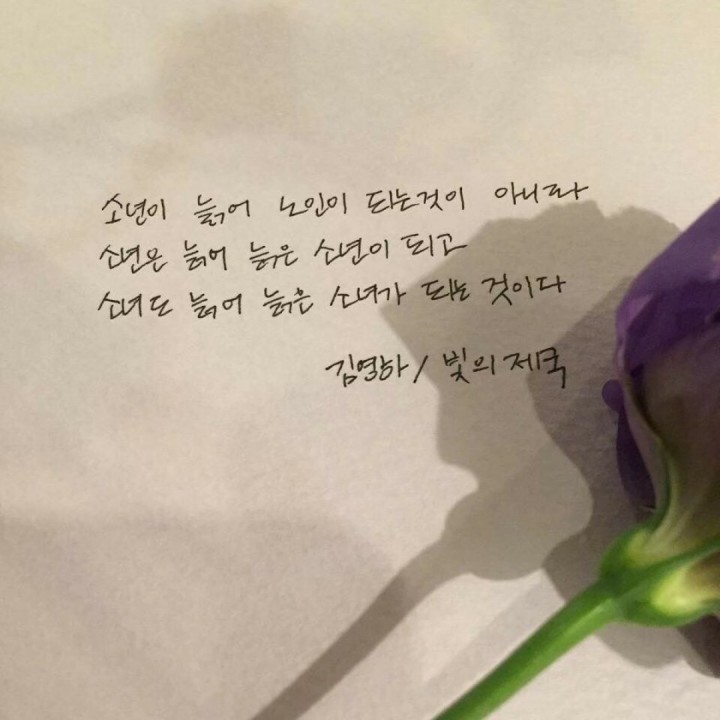 소년이 늙어 노인이 되는것이 아니라
소년은 늙어 늙은 소년이 되고
소녀도 늙어 늙은 소녀가 되는 것이다
김영하 / 빛의 제국